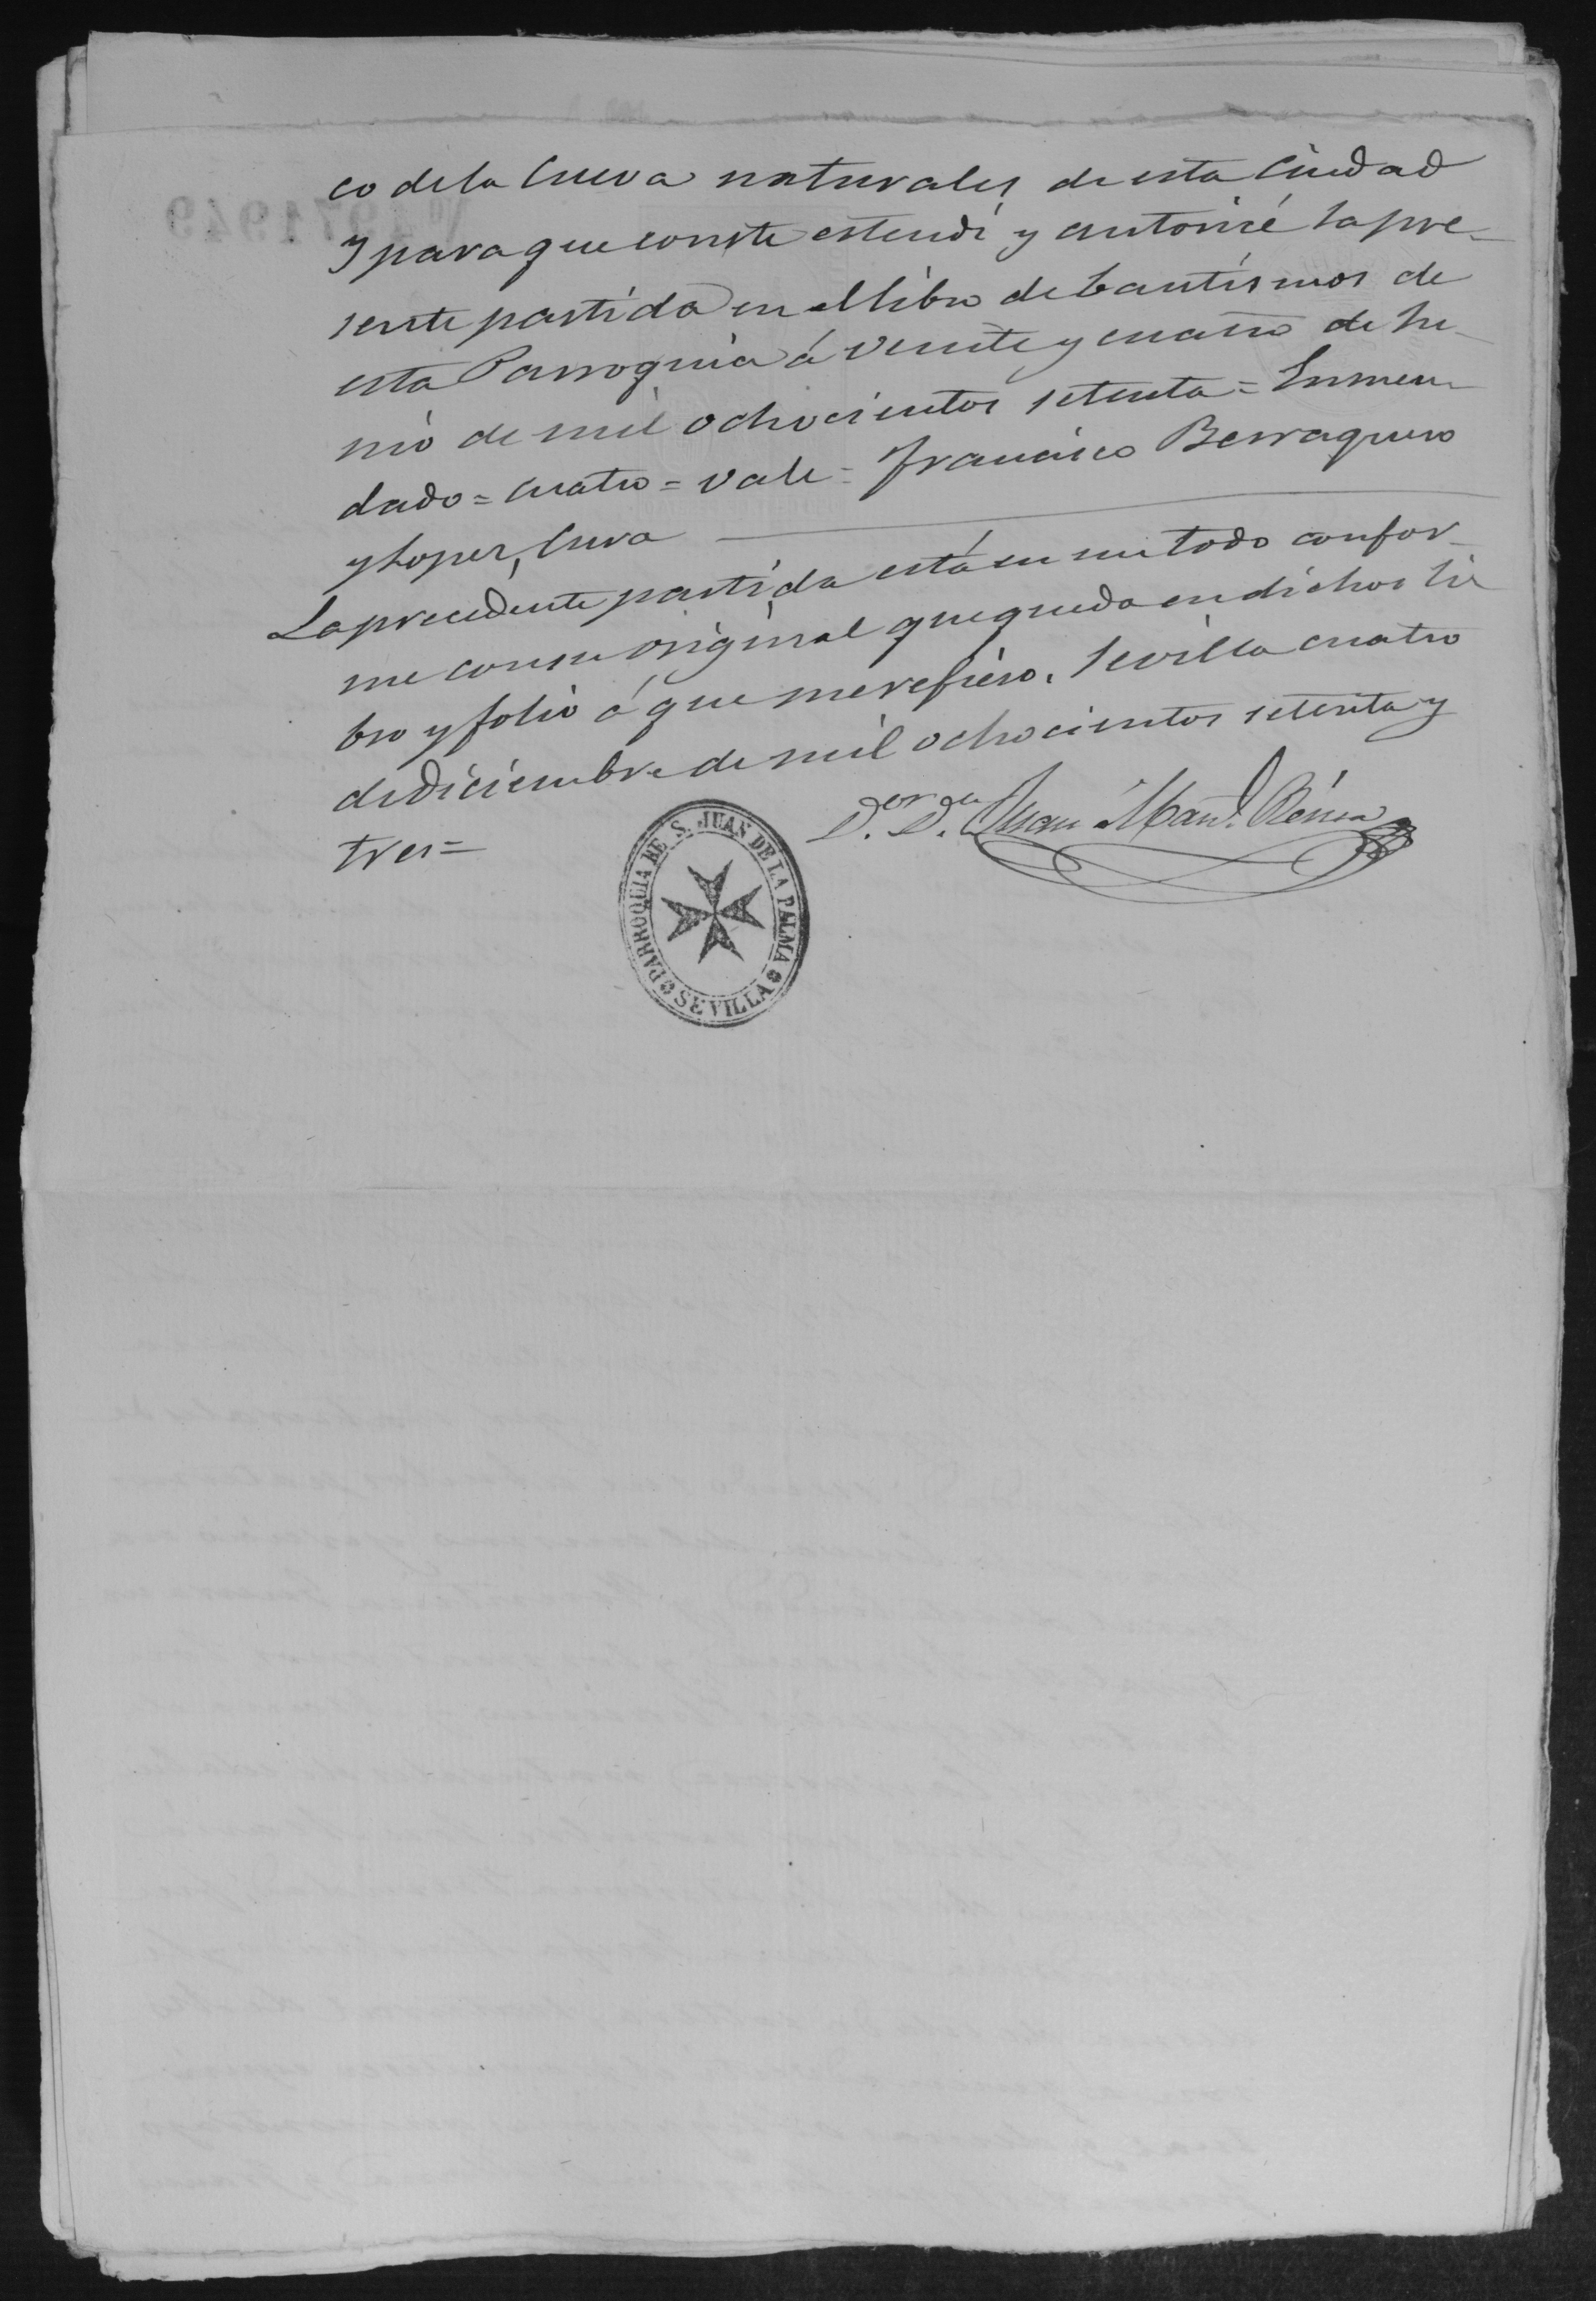 co de la Cueva naturales de esta Ciudad
y para que conste estendí y autoricé la pre-
sente partida en el libro de bautismos de
esta Parroquia á veinte y cuatro de Ju-
nio de mil ochocientos setenta = Enmen-
dado = cuatro = vale = Francisco Berraquero
y Lopez, Cura
La precedente partida está en un todo confor-
me con su original que queda en dichos li
bro y folio á que me refiero. Sevilla cuatro
de Diciembre de mil ochocientos setenta y
tres =
Juan Man.l
PARROQUIA DE S. JUAN DE LA PALMA
SEVILLA
Nº 4971949